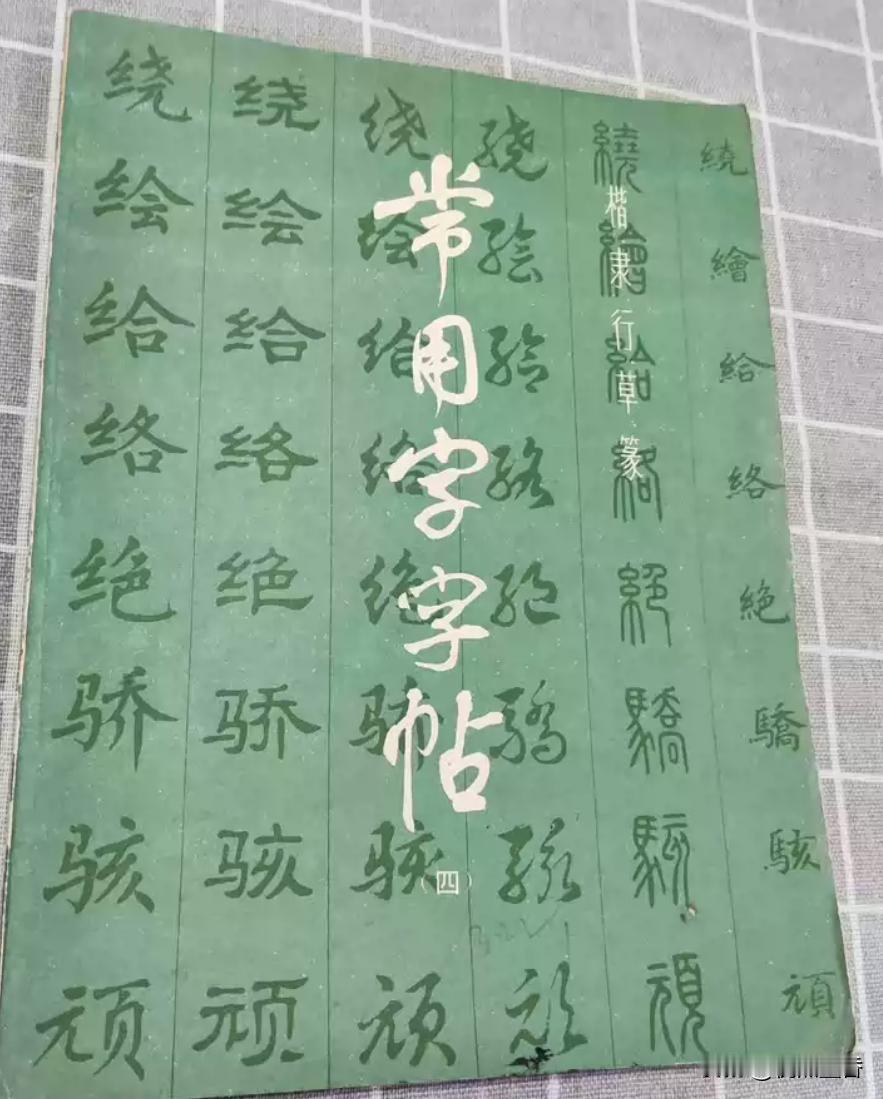 常用字字帖
（四）
楷·隶·行·草·篆
绕 绕 绕 绕 繞 繞
绘 绘 绘 绘 繪 繪
给 给 给 给 給 給
络 络 络 络 絡 絡
绝 绝 绝 绝 絕 絕
骄 骄 骄 驕 驕 驕
骇 骇 骇 骇 駭 駭
顽 顽 顽 顽 頑 頑